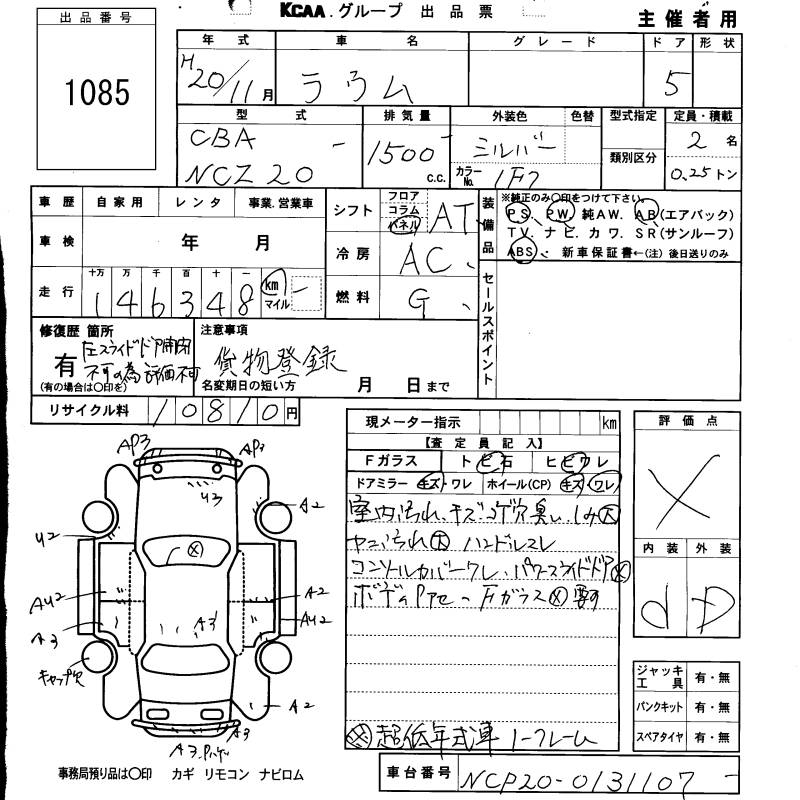 KCAA.グループ 出品票
主催者用
出品番号
1085
年式 車名 グレード ドア 形状
H20/11月 ラウム 5
型式 排気量 外装色 色替 型式指定 定員・積載
CBA - 1500 c.c. シルバー 2名
NCZ20 カラーNo. 1F7 類別区分 0.25トン
車歴 自家用 レンタ 事業.営業車
シフト フロア コラム パネル AT
装備品 ※純正のみ〇印をつけて下さい。
PS. PW. 純AW. AB(エアバック)
TV. ナビ. カワ. SR(サンルーフ)
ABS. 新車保証書←(注)後日送りのみ
車検 年 月
冷房 AC
走行 十万 万 千 百 十 一
146348 km マイル
燃料 G
セールスポイント
修復歴 箇所 注意事項
有 左スライドドア開閉
不可の為評価不可
(有の場合は〇印を)
貨物登録
名変期日の短い方 月 日まで
リサイクル料 10810円
現メーター指示 km
【査定員記入】
Fガラス トビ石 ヒビワレ
ドアミラー キズ・ワレ ホイール(CP) キズ・ワレ
室内汚れ、キズコゲ穴臭い、しみ大
ヤニ汚れ大 ハンドルスレ
コンソールカバーワレ、パワースライドドア×
Fガラス×要す
※超低年式車
評価点
×
内装 外装
d D
ジャッキ 工具 有・無
パンクキット 有・無
スペアタイヤ 有・無
AP3 AP3
U3
A2
U2
×
AU2 A2
A3 A3 AU2
キャップ欠
A2
A3
A3
事務局預り品は〇印 カギ リモコン ナビロム
車台番号 NCP20-0131107